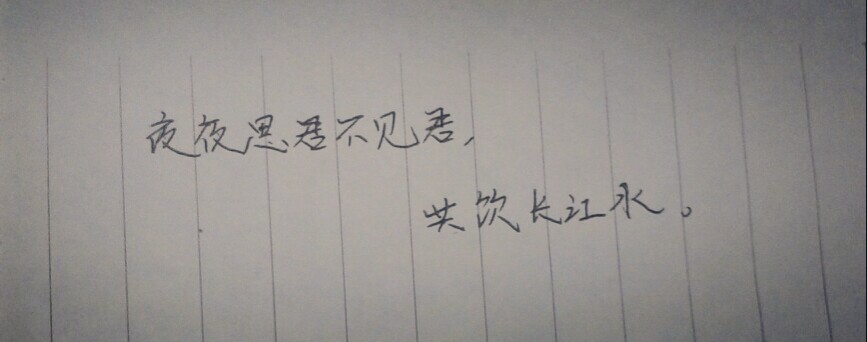 夜夜思君不见君,
共饮长江水。